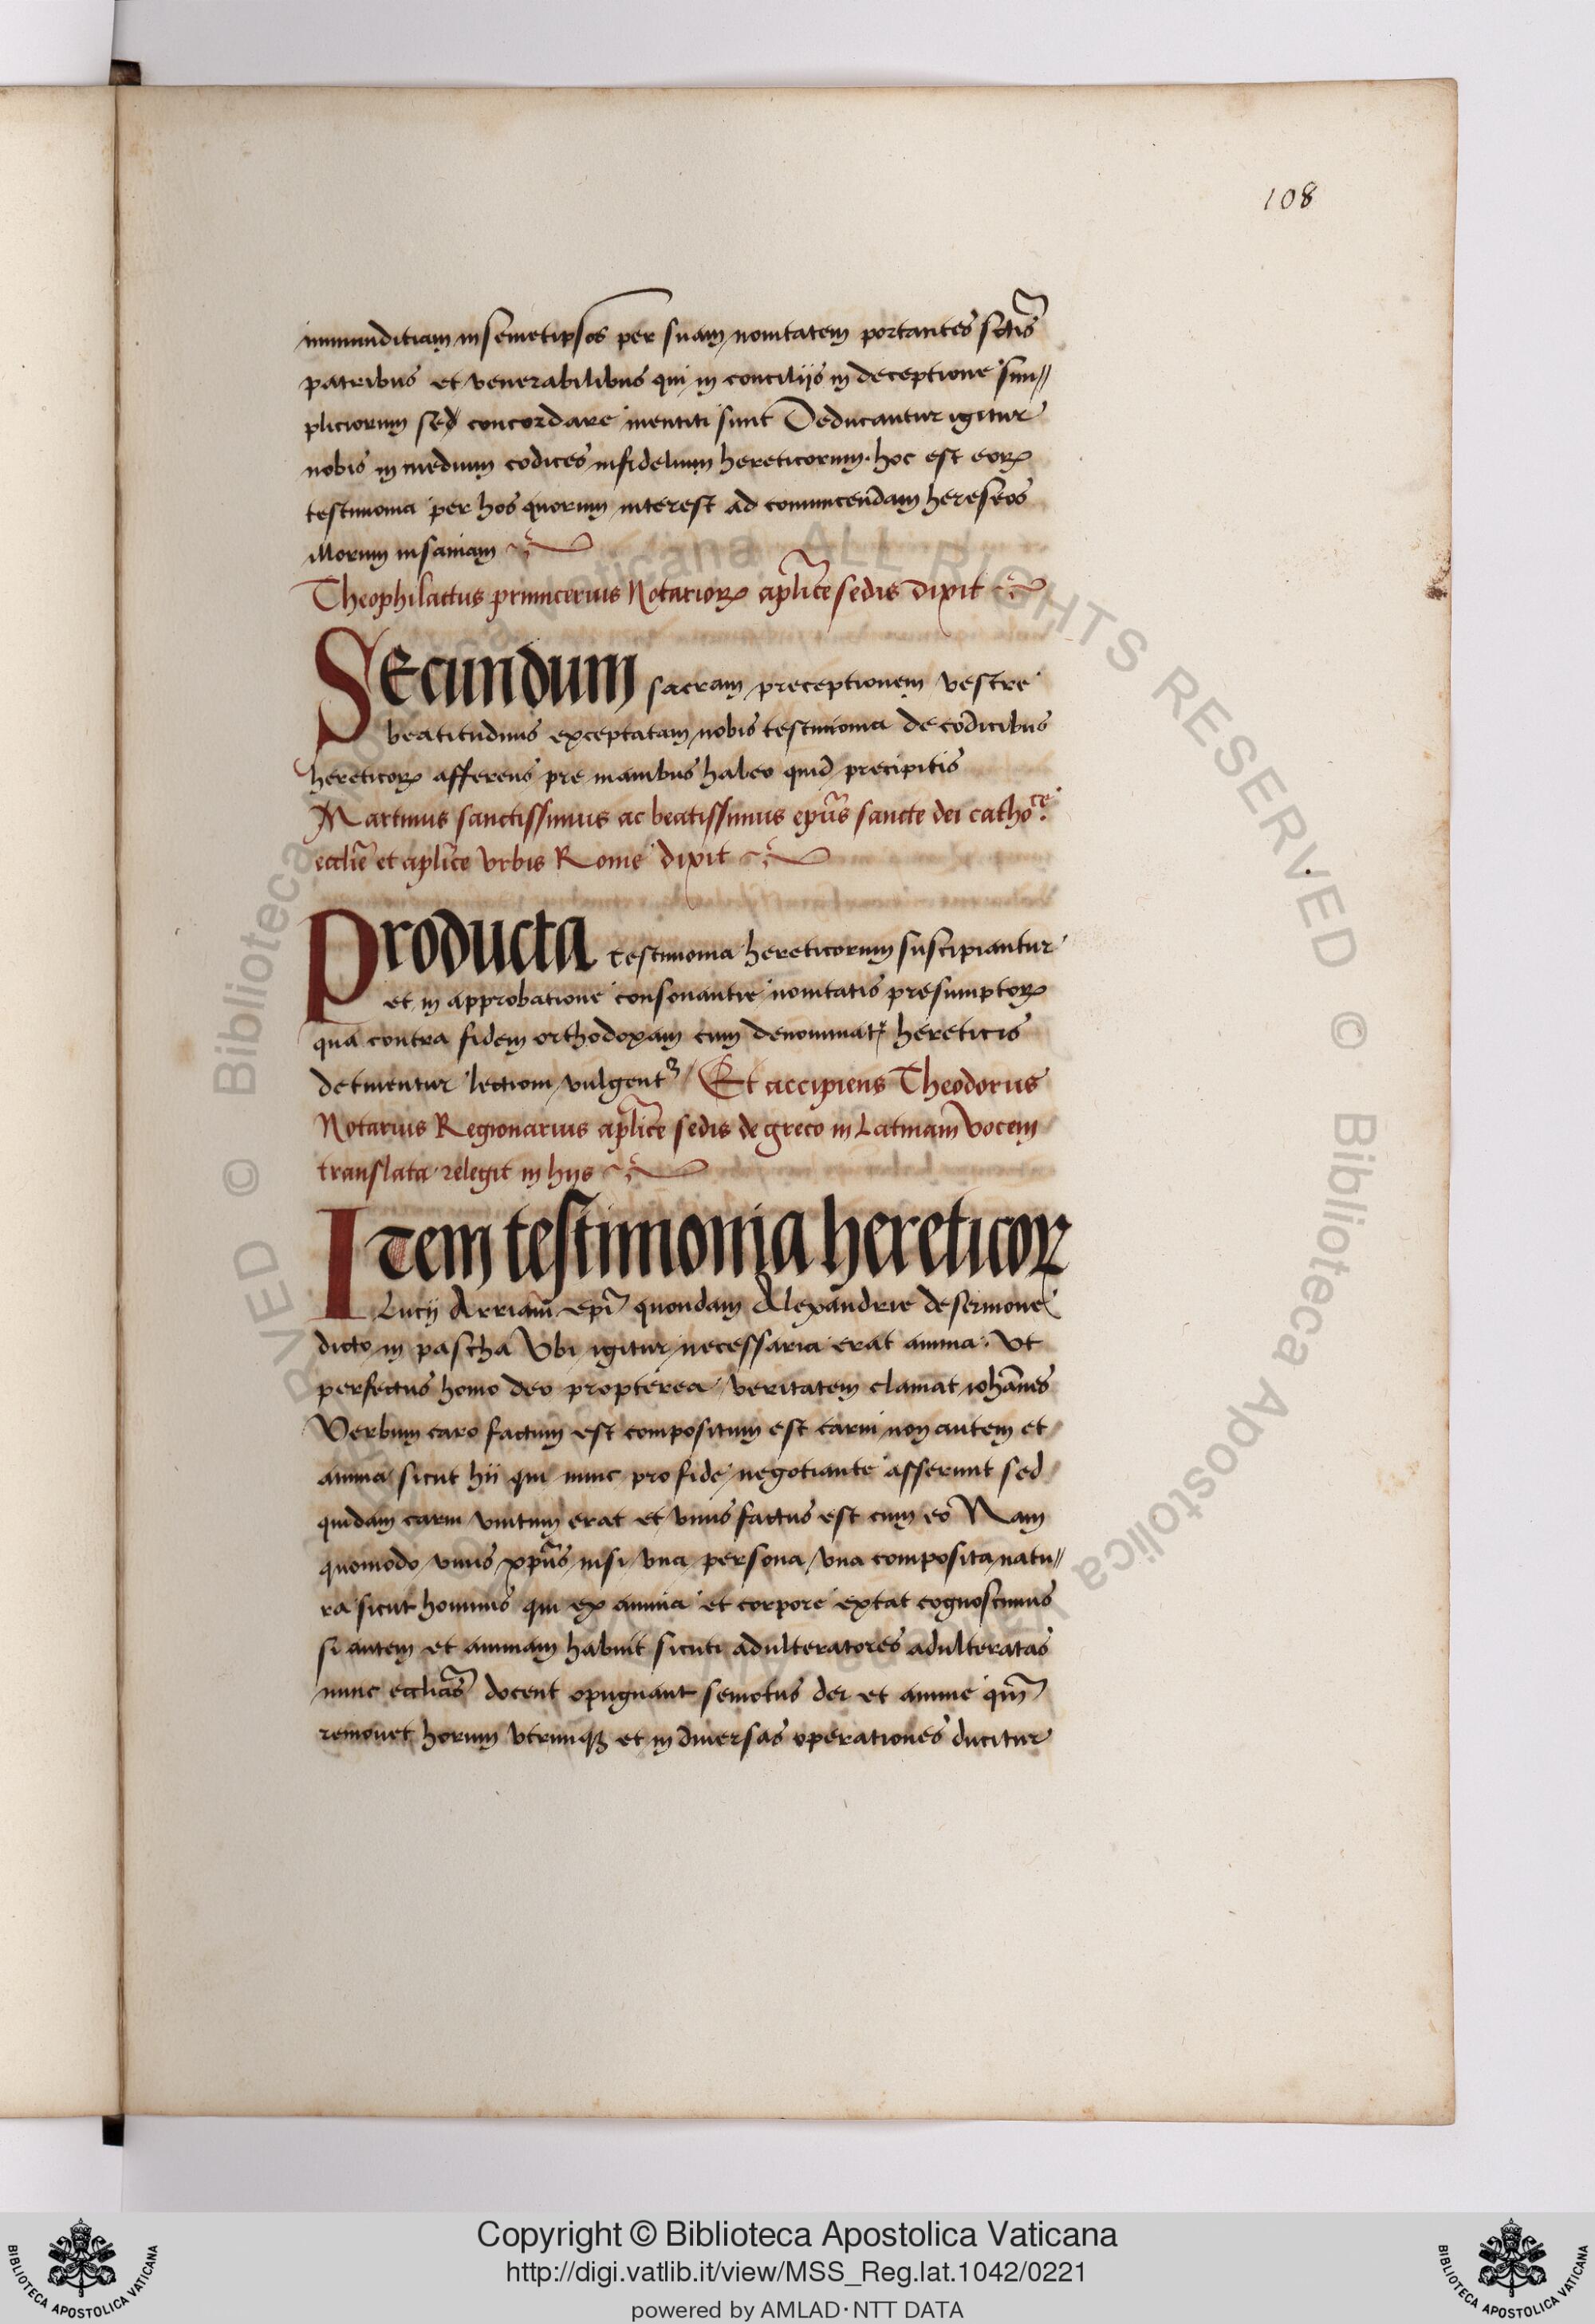 108
inmunditiam in semetipsos per suam nouitatem portantes sctis̃
patribus et venerabilibus qui in concilijs in deceptione sim//
pliciorum sed concordare mentiti sunt Deducantur igitur
nobis in medium codices infidelium hereticorum. hoc est eoꝝ
testimonia per hos quorum interest ad conuincendam hereseos
illorum insaniam
Theophilactus primicerius Notarioꝝ aplice sedis dixit
SEcundum sacram preceptionem vestre
beatitudinis exceptatam nobis testimonia de codicibus
hereticoꝝ afferens pre manibus habeo quid precipitis
Martinus sanctissimus ac beatissimus epũs sancte dei cathoce.
ecclie et aplice vrbis Rome dixit
Producta testimonia hereticorum suscipiantur
et in approbatione consonantie nouitatis presumptoꝝ
qua contra fidem orthodoxam cum denominat hereticis
detinentur lectioni vulgent Et accipiens Theodorus
Notarius Regionarius aplice sedis de greco in Latinam vocem
translata relegit in hijs
Item testimonia hereticoꝝ
Lucij Arriani epi quondam Alexandrie de sermone
dicto in pascha Vbi igitur necessaria erat anima. Vt
perfectus homo deo propterea veritatem clamat iohãnes
Verbum caro factum est compositum est carni non autem et
anima sicut hii qui nunc pro fide negotiante asserunt sed
quidam carni vnitum erat et vnus factus est cum eo Nam
quomodo vnus xpũs nisi vna persona vna composita natu//
ra sicut hominis qui ex anima et corpore extat cognoscimus
si autem et animam habuit sicuti adulteratores adulteratas
nunc ecclias̃ docent opugnant semotus dei et anime qm̃
remouet horum vtrumqꝫ et in diuersas operationes ducitur
Copyright © Biblioteca Apostolica Vaticana
http://digi.vatlib.it/view/MSS_Reg.lat.1042/0221
powered by AMLAD·NTT DATA
BIBLIOTECA APOSTOLICA VATICANA
BIBLIOTECA APOSTOLICA VATICANA